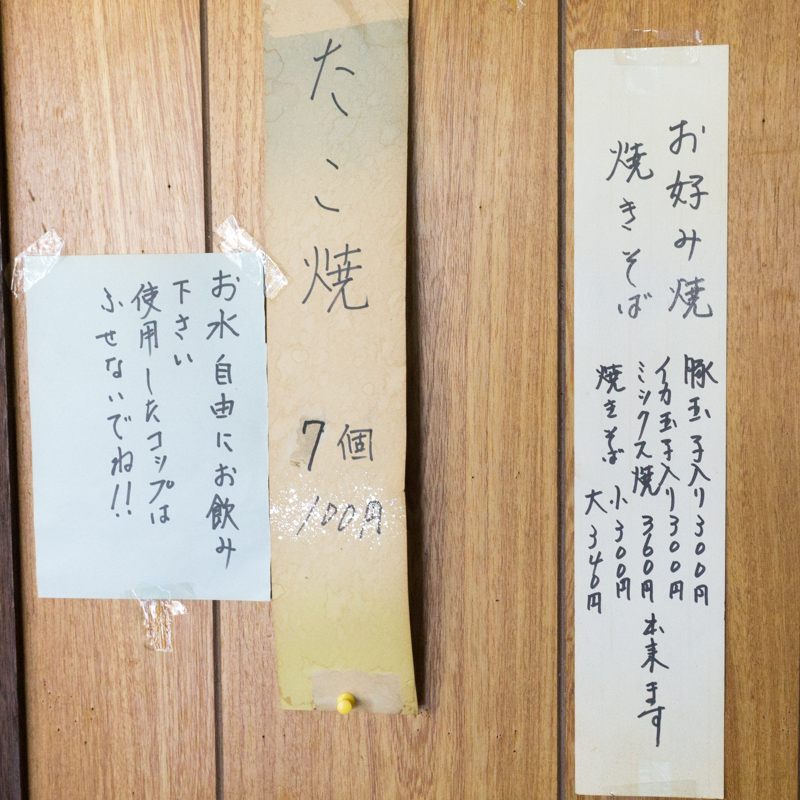 お好み焼
焼きそば
豚玉子入り300円
イカ玉子入り300円
ミックス焼360円
焼きそば 小300円
大340円
出来ます
たこ焼 7個
100円
お水自由にお飲み
下さい
使用したコップは
ふせないでね!!